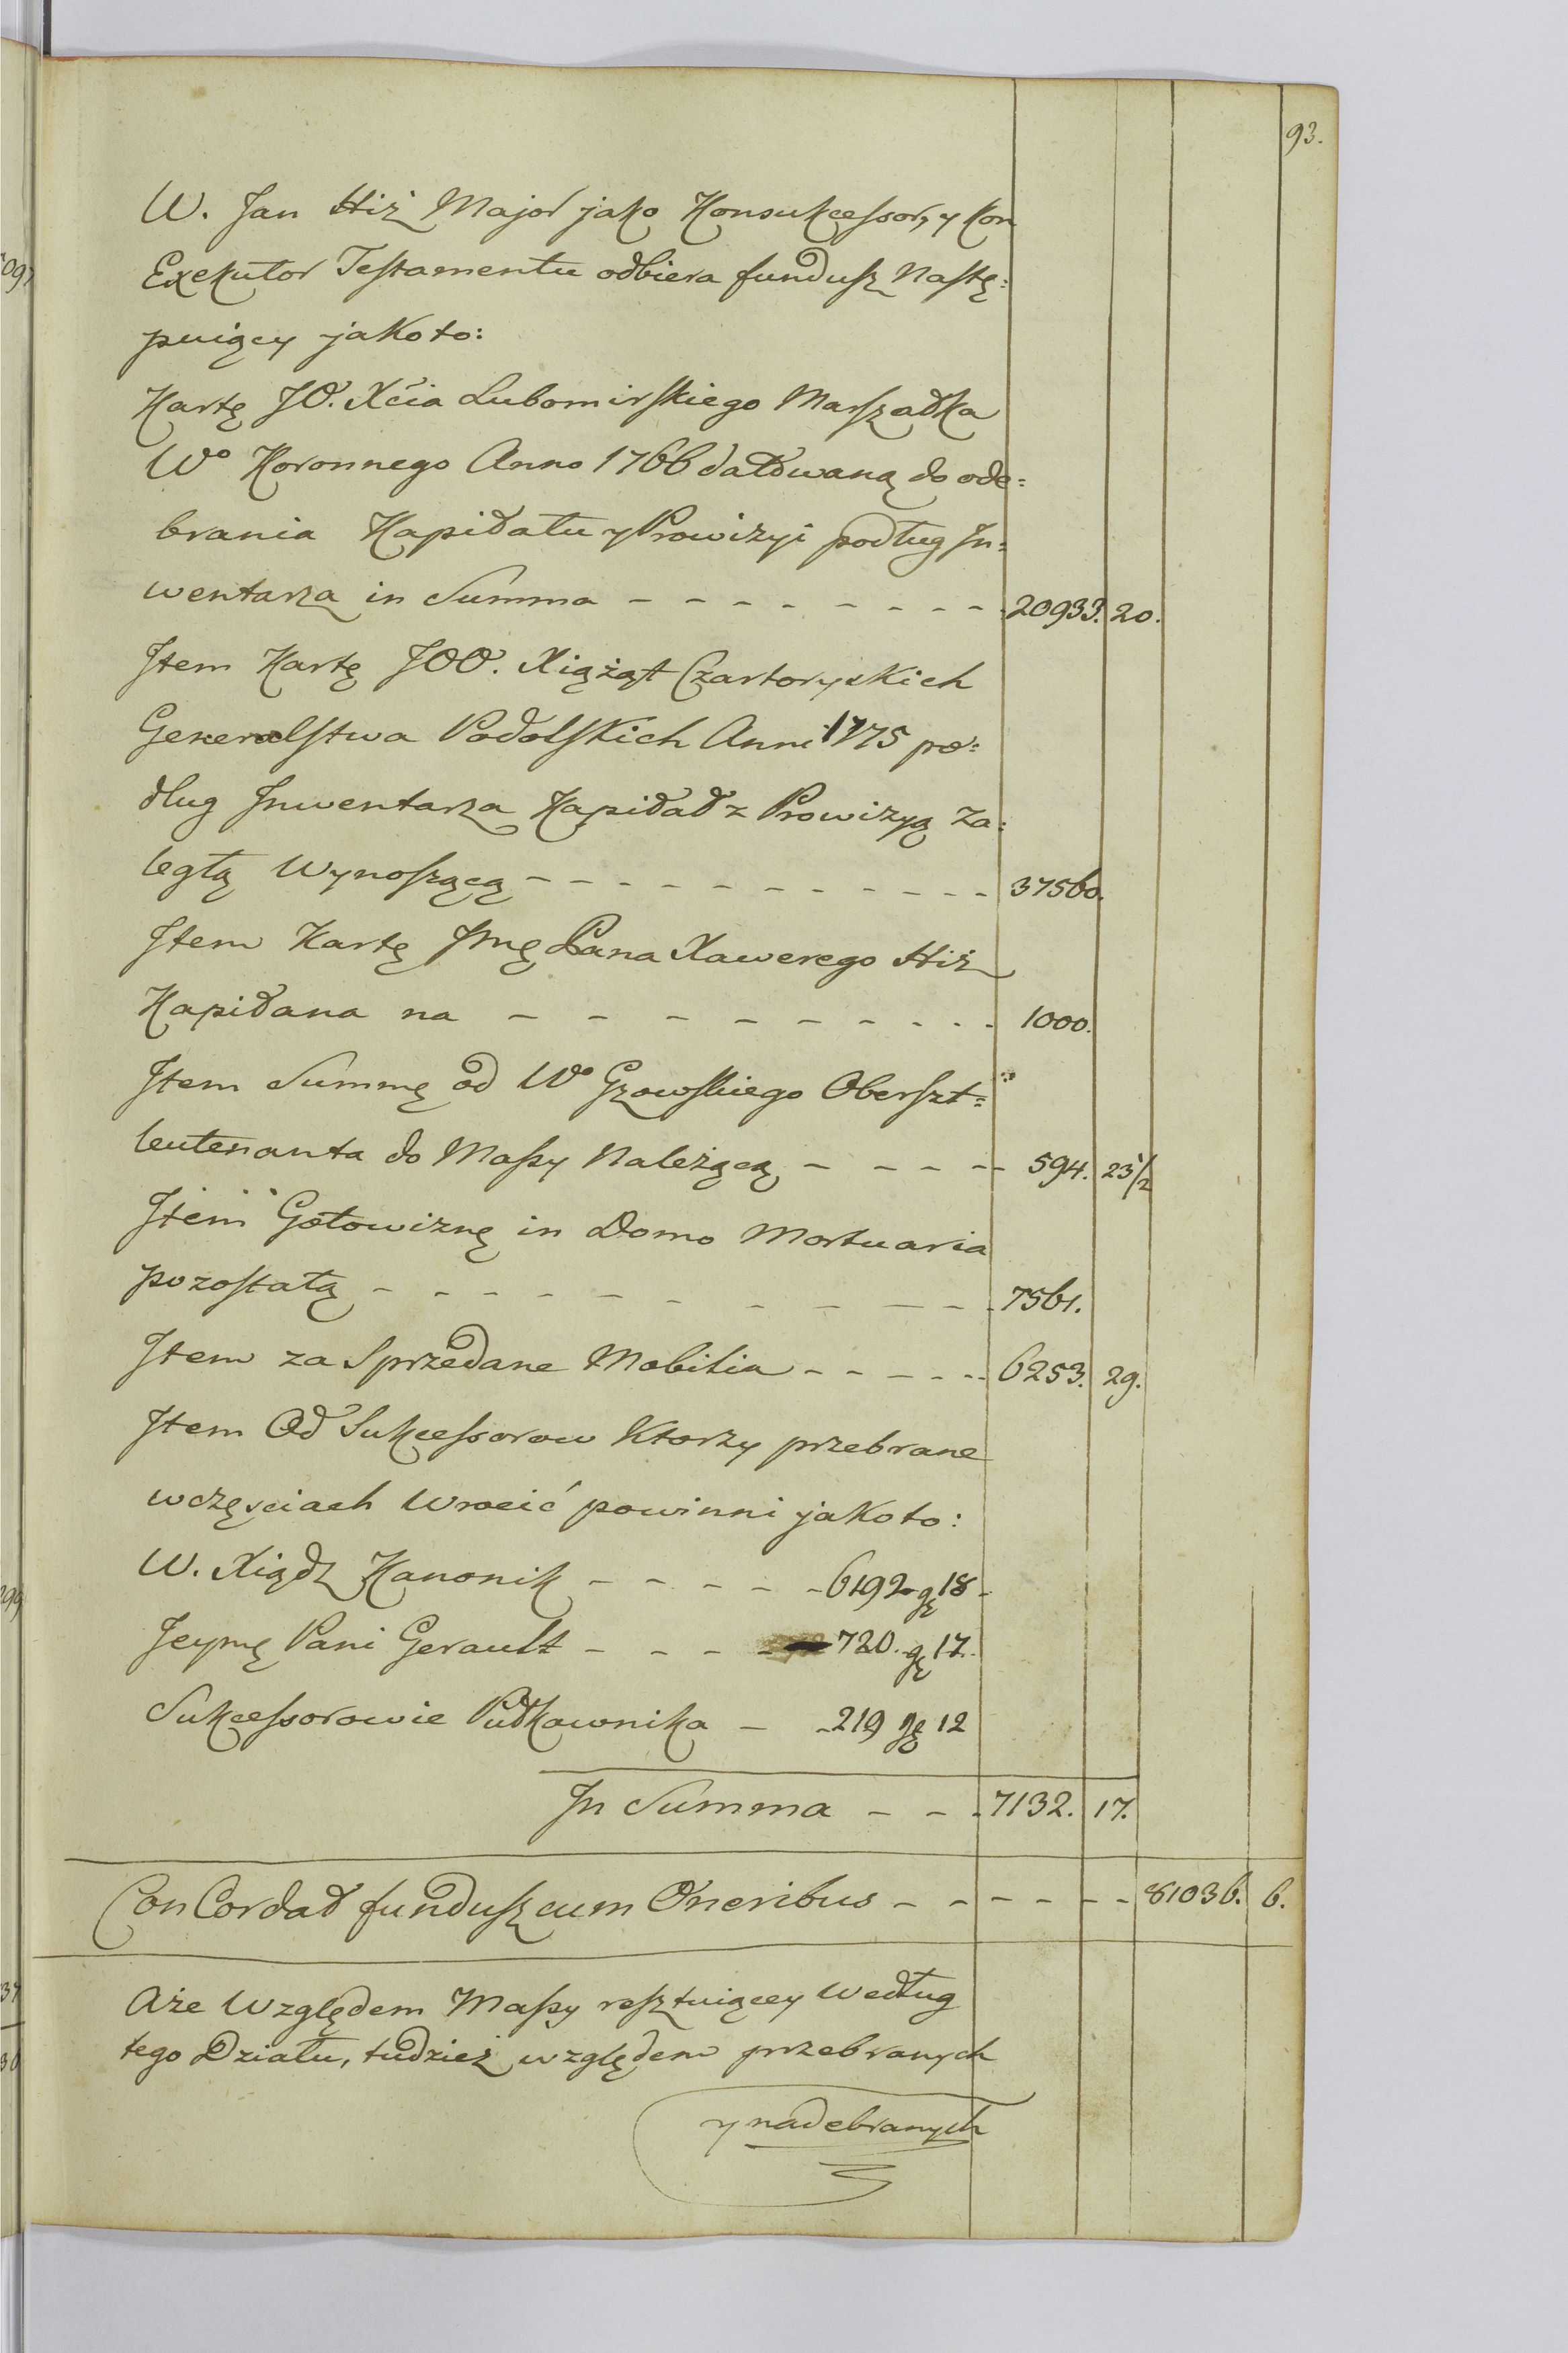 93.
W. Jan Hiż Major jako Konsukcessor, y kon
Exekutor Testamentu odbiera fundusz Nastę=
puiący jako to:
Kartę JO. Xcia Lubomirskiego Marszałka
Wo Koronnego Anno 1766 datowaną do ode=
brania Kapitału y Prowizyi podług In=
wentarza in Summa - - - - - - - - 20933. 20.
Item Kartę JOO. Xiążąt Czartoryskich
Generalstwa Podolskich Anni 1775 po=
dług Inwentarza Kapitał z Prowizyą za=
ległą Wynoszącą - - - - - - - - - - - 37560.
Item Kartę Jmę Pana Xawerego Hiż
Kapitana na - - - - - - - - - - 1000.
Item Summę od Wo Gzowskiego Oberszt=
leutenanta do Massy Należącą - - - - - 594. 23/2
Item Gotowiznę in Domo Mortuaria
pozostałą - - - - - - - - - - - - 7561.
Item za Sprzedane Mobilia - - - - - 6253. 29.
Item Od Sukcessorow Ktorzy przebrane
w częściach Wrocić powinni jako to:
W. Xiądz Kanonik - - - - - 6192 gę 18 -
Jeymę Pani Gerault - - - - 720. gę 17.
Sukcessorowie Pułkownika - - 219 gę 12
In Summa - - - 7132. 17.
ConCordat fundusz cum Oneribus - - - - - - 81036. 6.
Aże Względem Massy resztuiącey Według
tego Działu, tudzież względem przebranych
y nadebranych